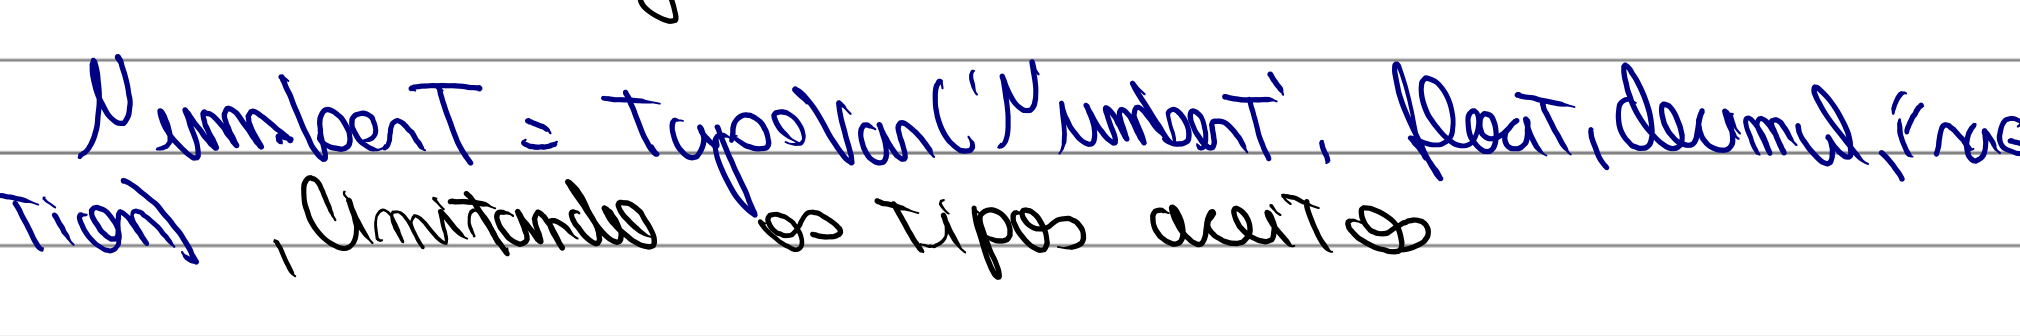 NumberT = TypeVar("NumberT", float, decimal, frac
tion) , limitando os tipos aceitos